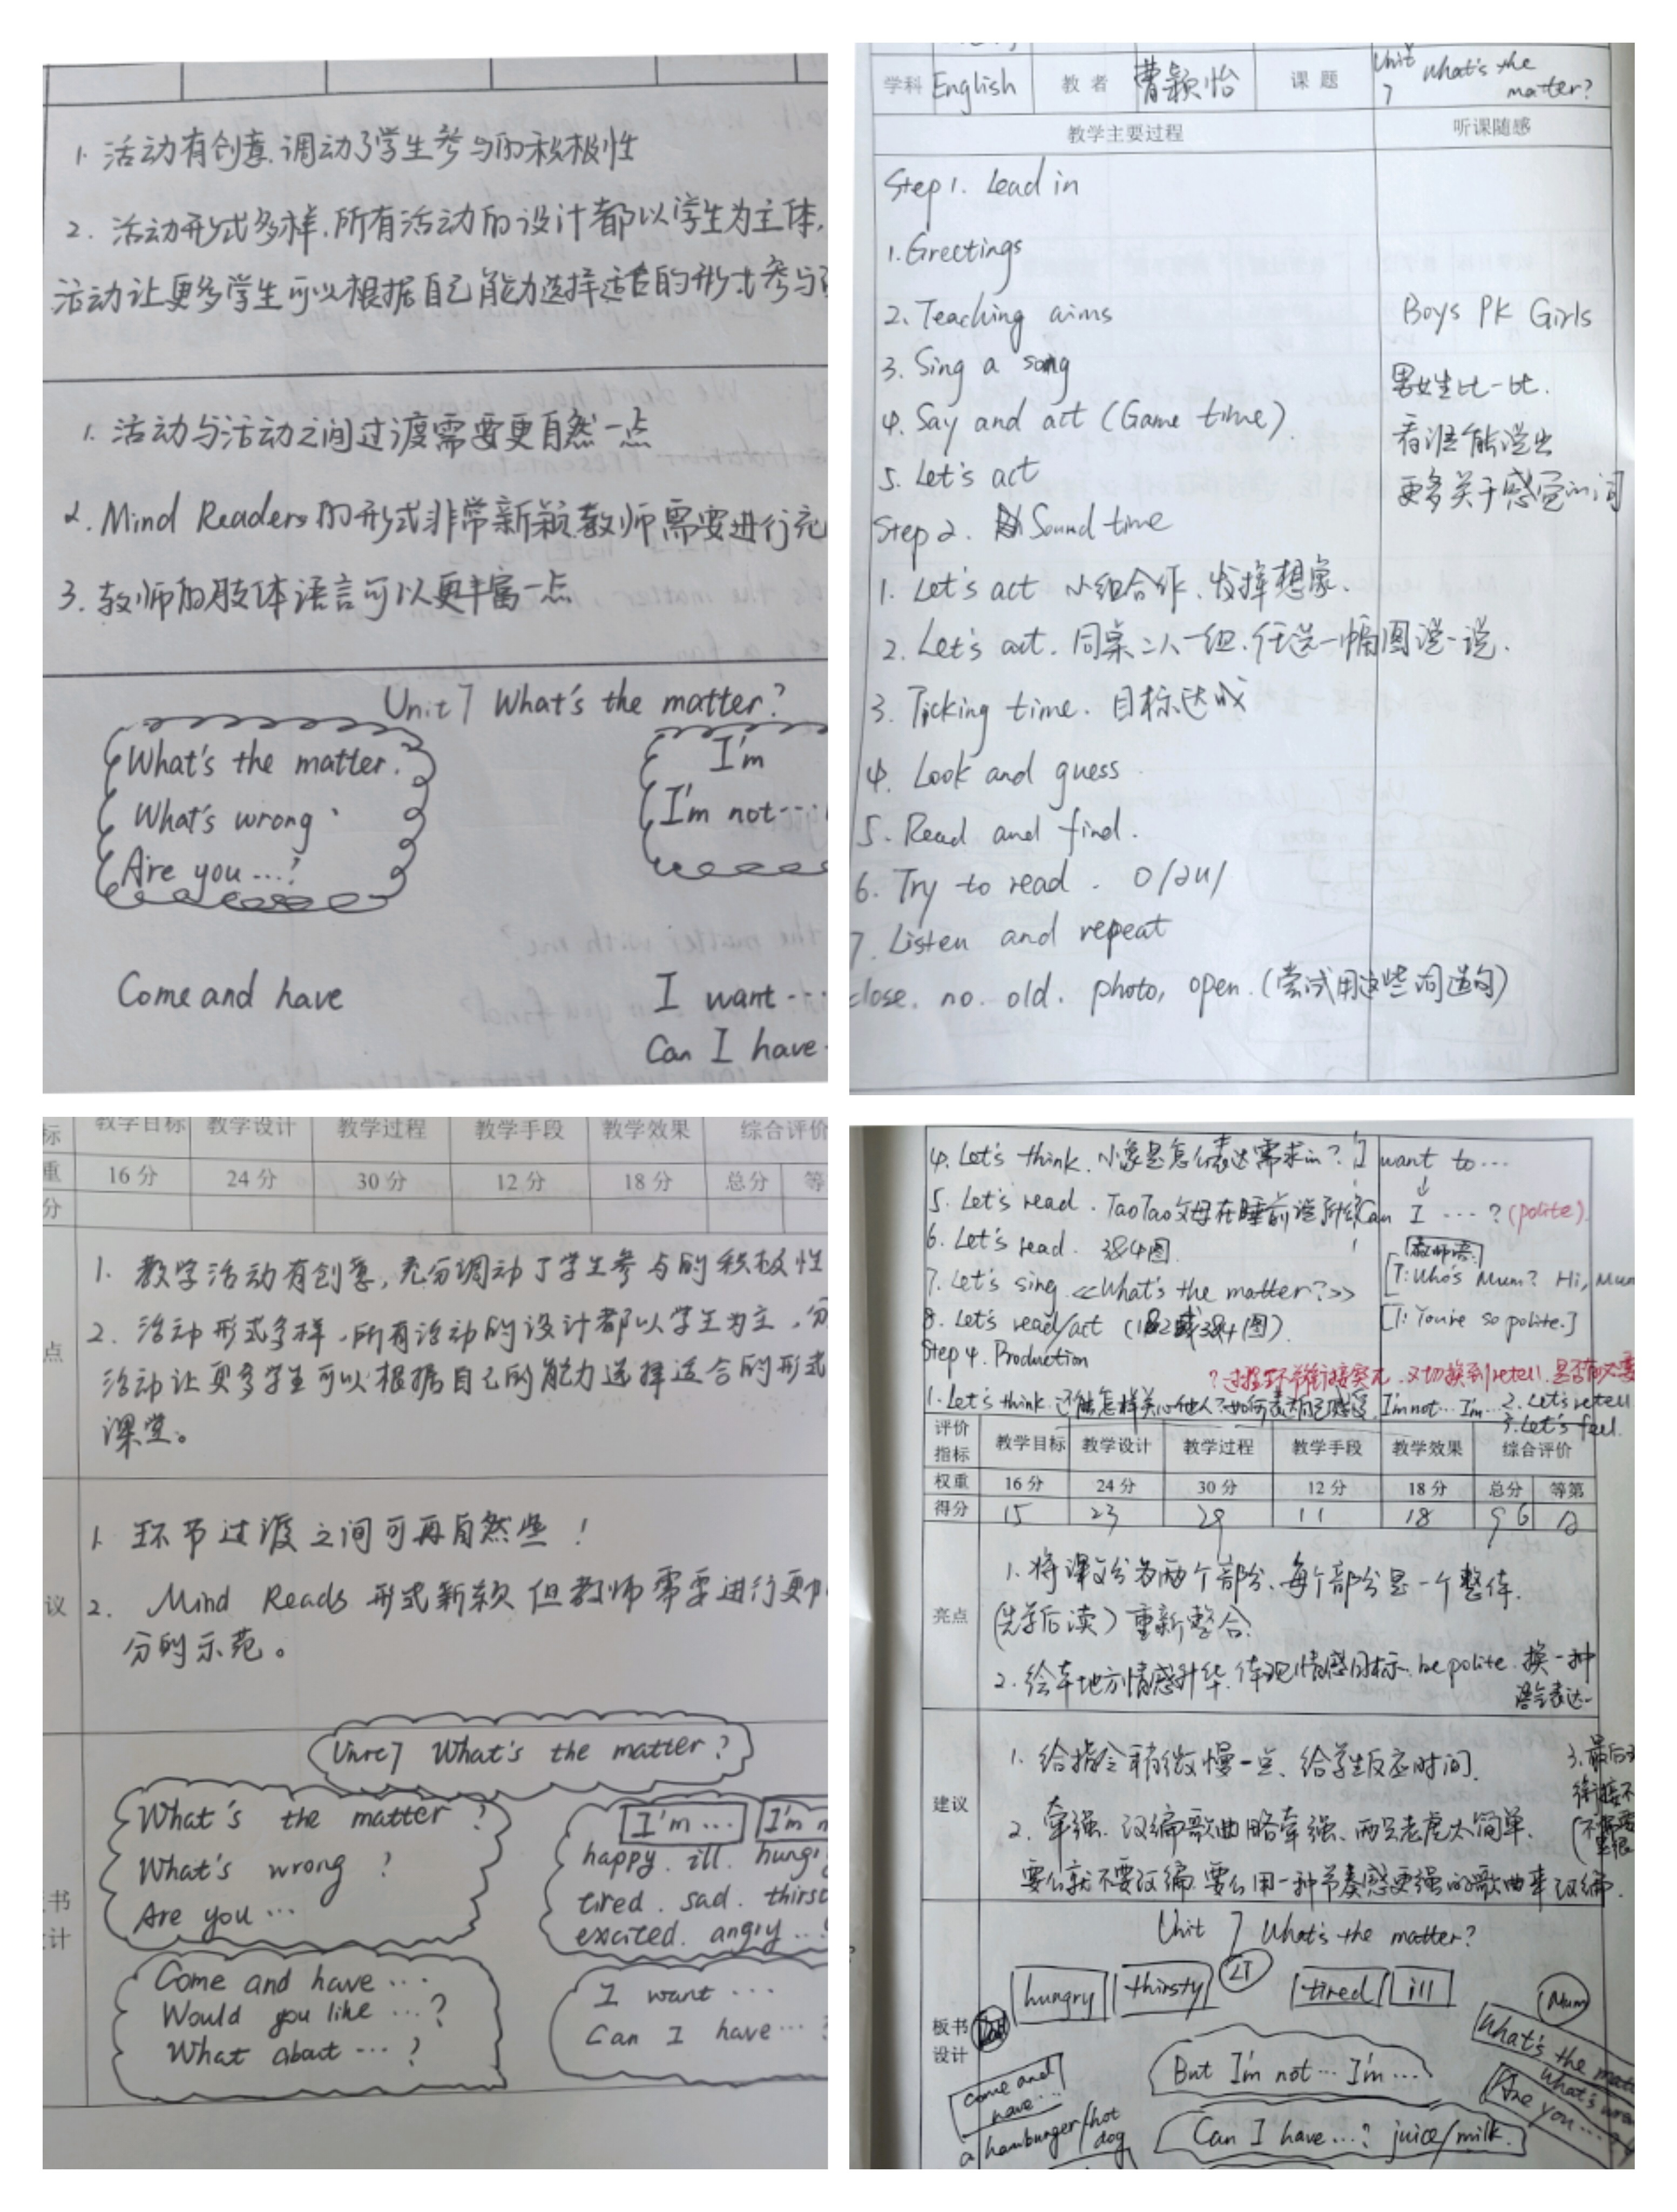 1. 活动有创意,调动了学生参与的积极性
2. 活动形式多样,所有活动的设计都以学生为主体,
活动让更多学生可以根据自己能力选择适合的形式参与
1. 活动与活动之间过渡需要更自然一点
2. Mind Readers的形式非常新颖,教师需要进行充
3. 教师的肢体语言可以更丰富一点
Unit 7 What's the matter?
What's the matter.
What's wrong
Are you ...?
I'm
I'm not...
Come and have
I want ...
Can I have
学科 English 教者 曹颖怡 课题 Unit 7 What's the matter?
教学主要过程 听课随感
Step 1. Lead in
1. Greetings
2. Teaching aims
Boys PK Girls
3. Sing a song
男女生比一比.
4. Say and act (Game time).
看谁能说出
5. Let's act
更多关于感觉的词
Step 2. Sound time
1. Let's act 小组合作,发挥想象.
2. Let's act. 同桌二人一组,任选一幅图说一说.
3. Ticking time. 目标达成
4. Look and guess
5. Read and find.
6. Try to read. o/əu/
7. Listen and repeat
close. no. old. photo, open. (尝试用这些词造句)
标 教学目标 教学设计 教学过程 教学手段 教学效果 综合评价
重 16分 24分 30分 12分 18分 总分 等
分
1. 教学活动有创意,充分调动了学生参与的积极性
点
2. 活动形式多样,所有活动的设计都以学生为主,分
活动让更多学生可以根据自己的能力选择适合的形式
课堂。
1. 环节过渡之间可再自然些!
议
2. Mind Reads 形式新颖但教师需要进行更加
分的示范。
Unit 7 What's the matter?
What's the matter?
What's wrong?
Are you ...
I'm ... I'm n
happy. ill. hungr
tired. sad. thirst
excited. angry ...
书
计
Come and have ...
Would you like ...?
What about ...?
I want ...
Can I have ...
4. Let's think. 小象是怎么表达需求的? I want to...
5. Let's read. TaoTao父母在睡前说 Can I ...? (polite).
6. Let's read. 3&4图.
教师语
7. Let's sing <<What's the matter?>>
[T: Who's Mum? Hi, Mum
8. Let's read/act (1&2或3&4图).
[T: You're so polite.]
Step 4. Production
? 过程环节衔接突兀,又切换到retell,是否有必要
1. Let's think 还能怎样关心他人?如何表达自己感受 I'm not... I'm... 2. Let's retell
3. Let's feel.
评价指标 教学目标 教学设计 教学过程 教学手段 教学效果 综合评价
权重 16分 24分 30分 12分 18分 总分 等第
得分 15 23 29 11 18 96
亮点
1. 将课文分为两个部分,每个部分是一个整体.
(先学后读) 重新整合.
2. 绘本地方情感升华,体现情感目标. be polite. 换一种
语言表达
建议
1. 给指令稍微慢一点,给学生反应时间.
2. 牵强. 改编歌曲略牵强,两只老虎太简单.
要么就不要改编,要么用一种节奏感更强的歌曲来改编.
3. 最后
衔接不
板书设计
Unit 7 What's the matter?
hungry thirsty LT tired ill
Mum
What's the matt
What's wron
Are you ...
But I'm not ... I'm ...
come and have ...
a hamburger/hot dog
Can I have ...? juice/milk.